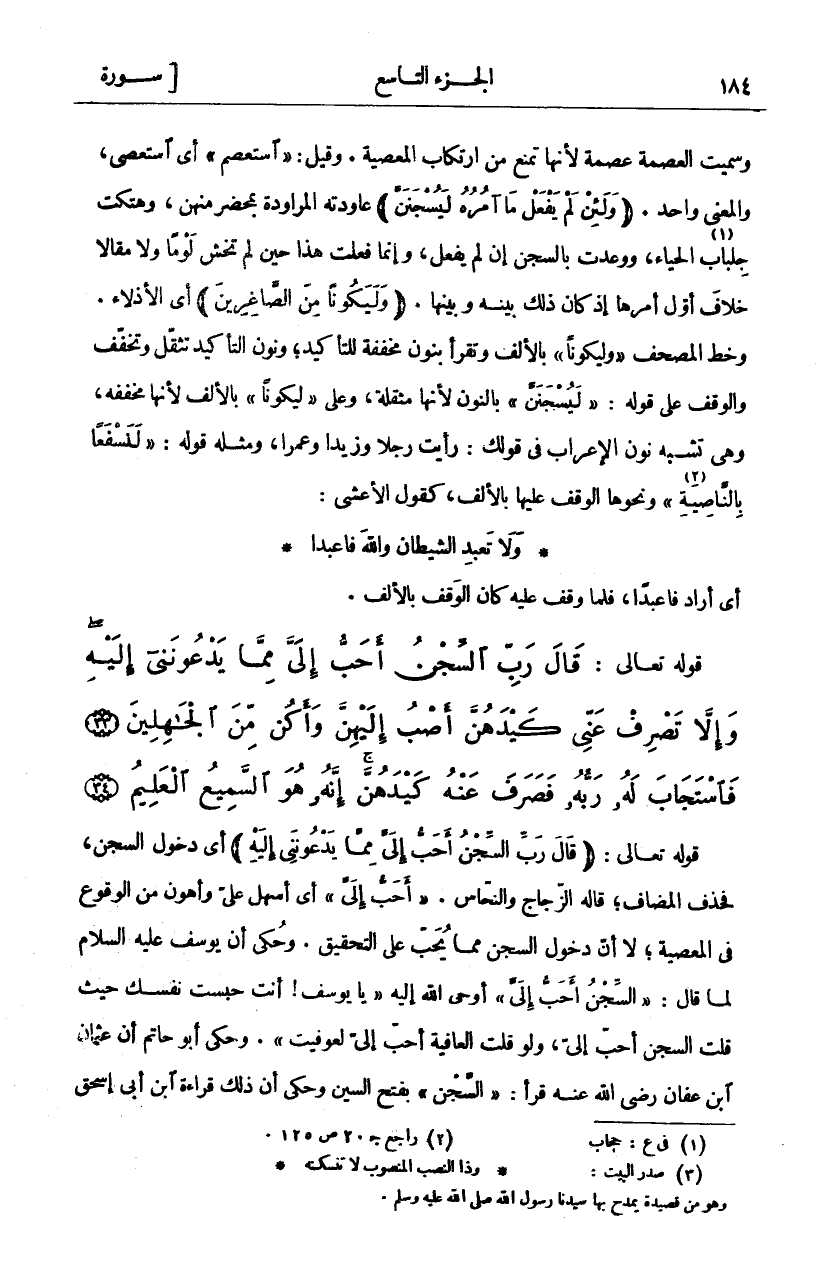 ١٨٤ الجزء التاسع [ سورة
وسميت العصمة عصمة لأنها تمنع من ارتكاب المعصية . وقيل: « ٱستعصم » أى ٱستعصى،
والمعنى واحد . ( وَلَئِنْ لَمْ يَفْعَلْ مَا آمُرُهُ لَيُسْجَنَنَّ ) عاودته المراودة بمحضر منهن ، وهتكت
جِلباب (١) الحياء، ووعدت بالسجن إن لم يفعل، وإنما فعلت هذا حين لم تخش لَوْمًا ولا مقالا
خلافَ أوّل أمرها إذ كان ذلك بينه وبينها . ( وَلَيَكُونًا مِنَ الصَّاغِرِينَ ) أى الأذلاء .
وخط المصحف «وليكونًا» بالألف وتقرأ بنون مخففة للتأكيد؛ ونون التأكيد تثقّل وتخفّف
والوقف على قوله : « لَيُسْجَنَنَّ » بالنون لأنها مثقلة، وعلى « ليكونًا » بالألف لأنها مخففه،
وهى تشبه نون الإعراب فى قولك : رأيت رجلا وزيدا وعمرا، ومثله قوله : « لَنَسْفَعًا
بِالنَّاصِيَةِ (٢) » ونحوها الوقف عليها بالألف، كقول الأعشى :
* وَلَا تَعبدِ الشيطان واللهَ فاعبدا *
أى أراد فاعبدًا، فلما وقف عليه كان الوَقف بالألف .
قوله تعالى : قَالَ رَبِّ ٱلسِّجْنُ أَحَبُّ إِلَىَّ مِمَّا يَدْعُونَنِىٓ إِلَيْهِ ۖ
وَإِلَّا تَصْرِفْ عَنِّى كَيْدَهُنَّ أَصْبُ إِلَيْهِنَّ وَأَكُن مِّنَ ٱلْجَٰهِلِينَ ٣٣
فَٱسْتَجَابَ لَهُۥ رَبُّهُۥ فَصَرَفَ عَنْهُ كَيْدَهُنَّ ۚ إِنَّهُۥ هُوَ ٱلسَّمِيعُ ٱلْعَلِيمُ ٣٤
قوله تعالى : ( قَالَ رَبِّ السِّجْنُ أَحَبُّ إِلَىَّ مِمَّا يَدْعُونَنِى إِلَيْهِ ) أى دخول السجن،
فحذف المضاف؛ قاله الزّجاج والنحّاس . « أَحَبُّ إِلَىَّ » أى أسهل علىّ وأهون من الوقوع
فى المعصية ؛ لا أنّ دخول السجن مما يُحَبّ على التحقيق . وحُكى أن يوسف عليه السلام
لما قال : « السِّجْنُ أَحَبُّ إِلَىَّ » أوحى الله إليه « يا يوسف ! أنت حبست نفسك حيث
قلت السجن أحبّ إلىّ، ولو قلت العافية أحبّ إلىّ لعوفيت » . وحكى أبو حاتم أن عثمان
ٱبن عفان رضى الله عنه قرأ : « السَّجْن » بفتح السين وحكى أن ذلك قراءة ٱبن أبى إسحق
(١) فى ع : حجاب (٢) راجع جـ ٢٠ ص ١٢٥ .
(٣) صدر البيت : * وذا النصب المنصوب لا تنسكنه *
وهو من قصيدة يمدح بها سيدنا رسول الله صلى الله عليه وسلم .